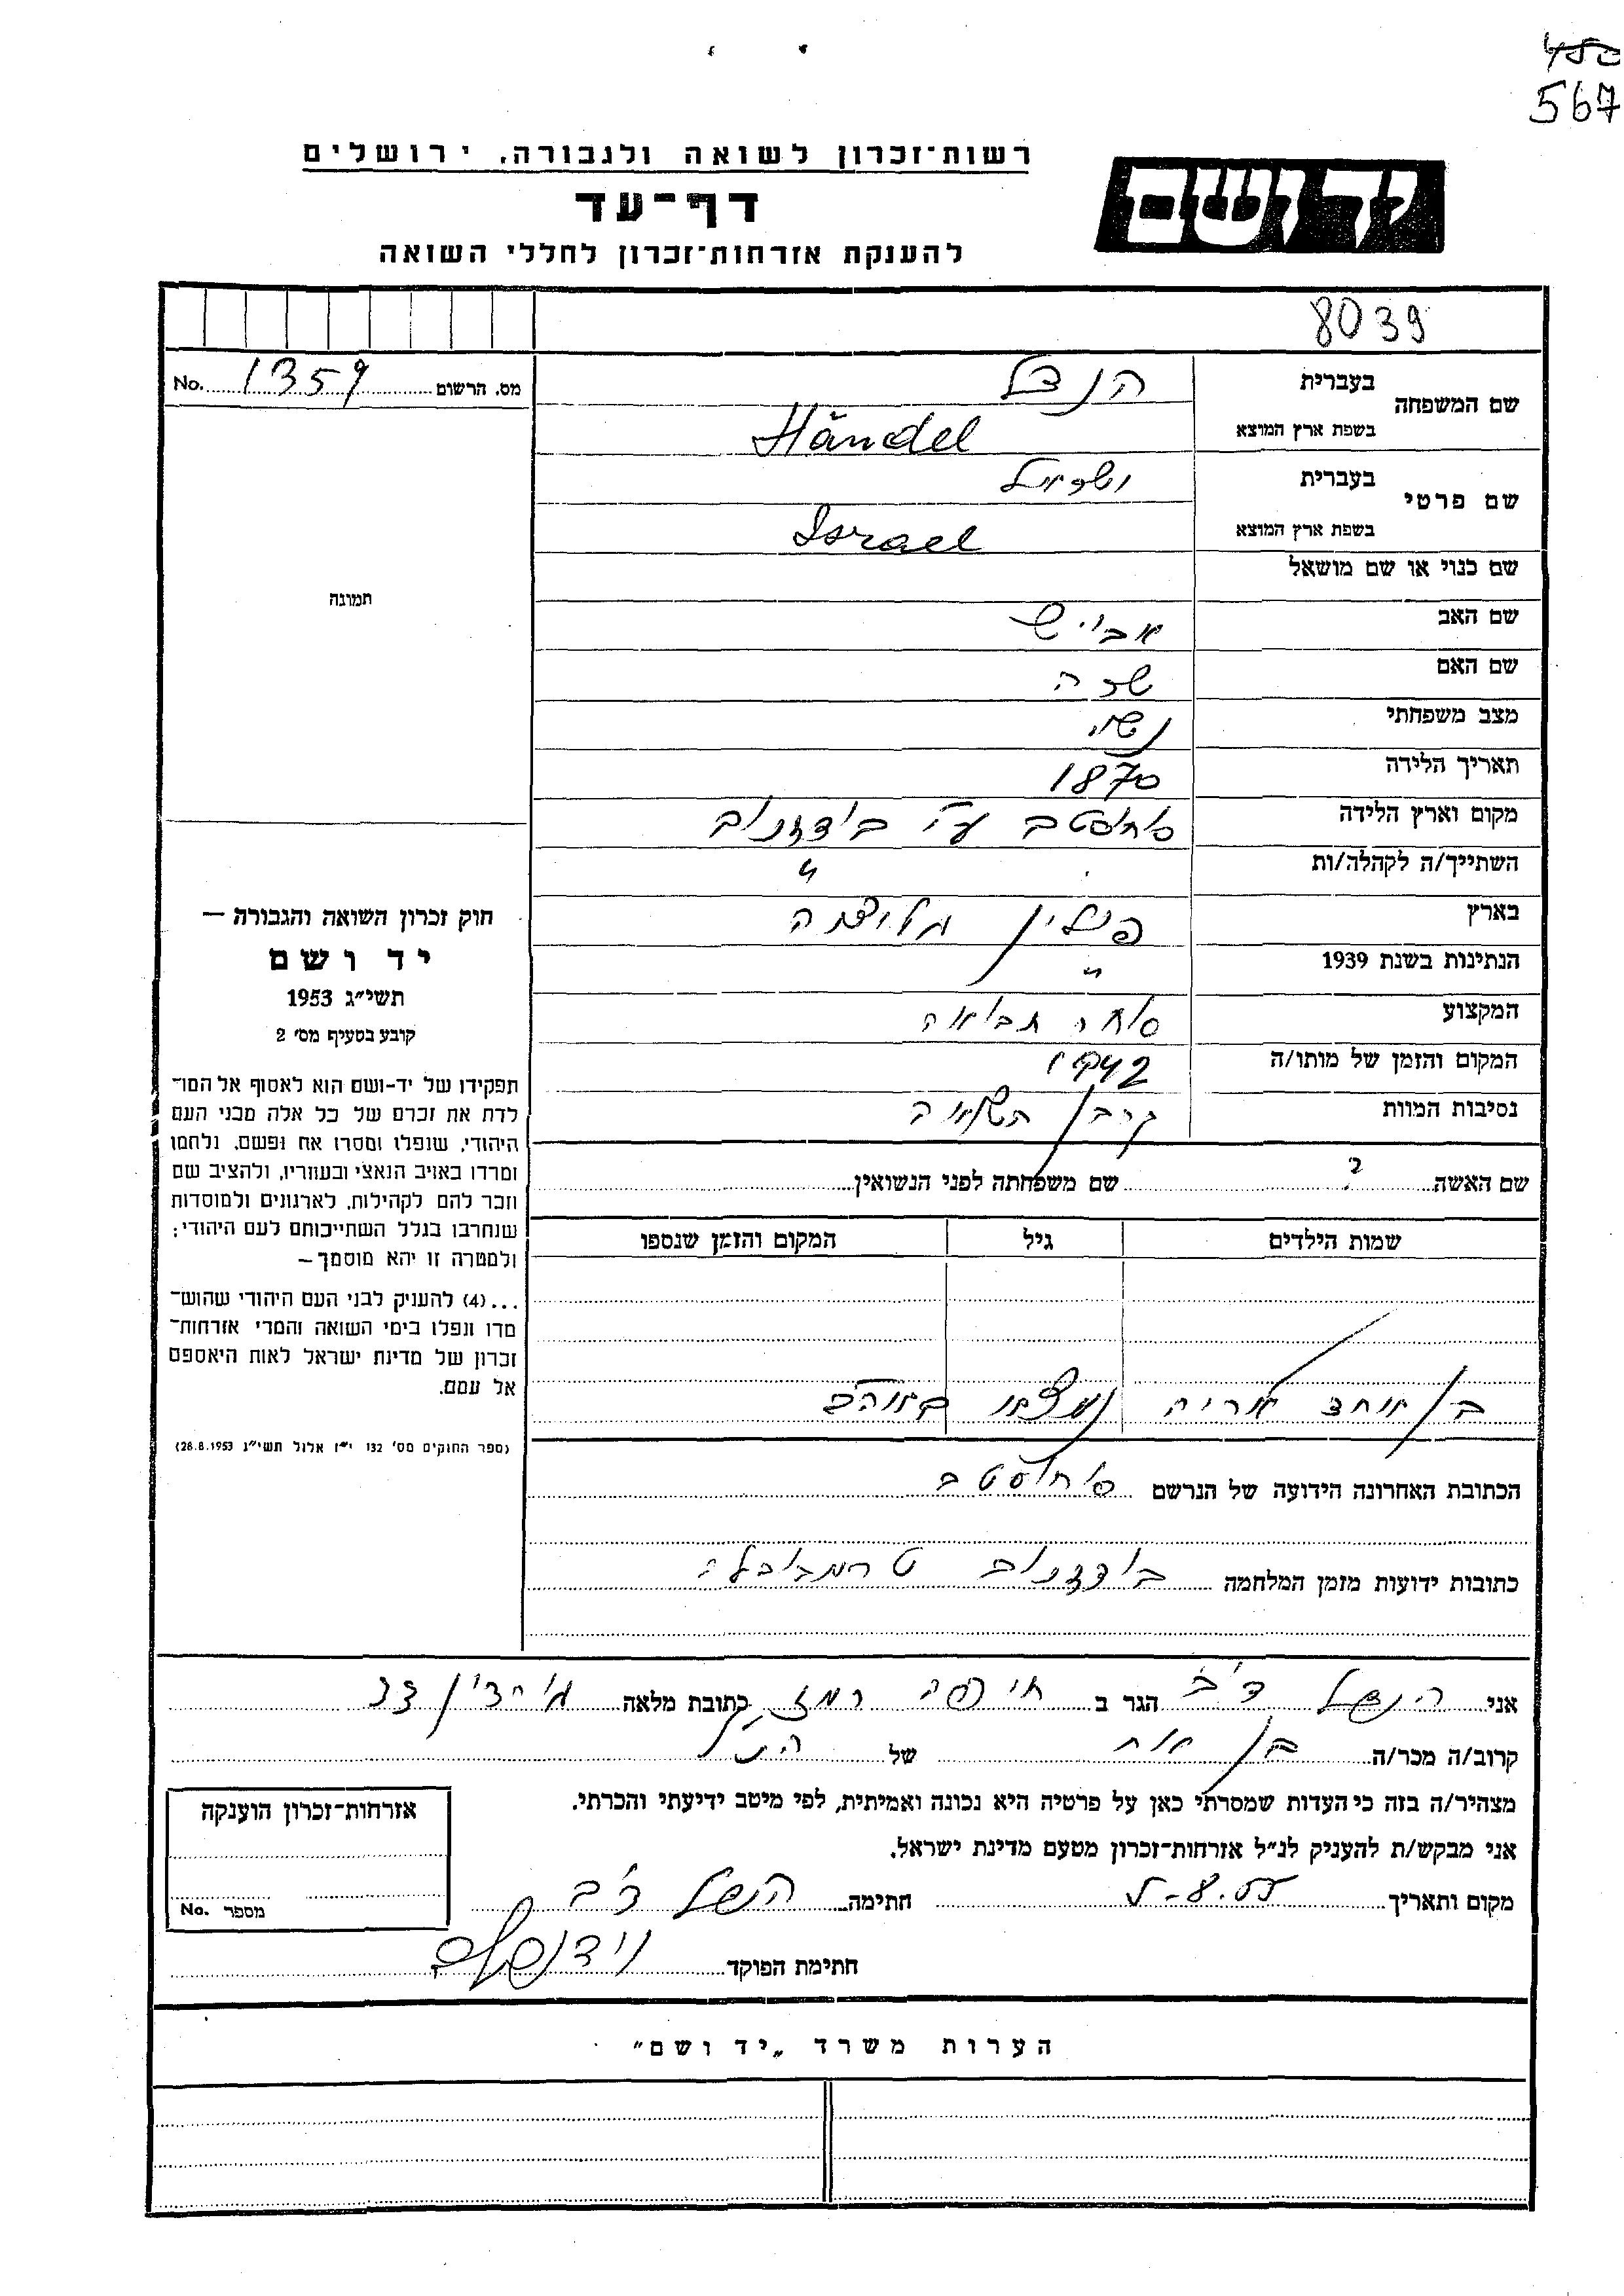 450
567
רשות־זכרון לשואה ולגבורה, ירושלים
יד ושם
דף־עד
להענקת אזרחות־זכרון לחללי השואה
8039
מס. הרשום 1359 No.
שם המשפחה
בעברית הנדל
בשפת ארץ המוצא Händel
שם פרטי
בעברית ישראל
בשפת ארץ המוצא Israel
שם כנוי או שם מושאל
תמונה
שם האב אבי׳ש
שם האם שרה
מצב משפחתי נשוי
תאריך הלידה 1870
מקום וארץ הלידה סוחוסטב ע״י
השתייך/ה לקהלה/ות "
בארץ פולין גליציה
הנתינות בשנת 1939 "
המקצוע סוחר תבואה
המקום והזמן של מותו/ה 1942
נסיבות המוות
שם האשה ? שם משפחתה לפני הנשואין
שמות הילדים גיל המקום והזמן שנספו
בן אחד אריה נמצא
הכתובת האחרונה הידועה של הנרשם סוחוסטב
כתובות ידועות מזמן המלחמה
חוק זכרון השואה והגבורה —
יד ושם
תשי״ג 1953
קובע בסעיף מס׳ 2
תפקידו של יד־ושם הוא לאסוף אל המו־
לדת את זכרם של כל אלה מבני העם
היהודי, שנפלו ומסרו את נפשם, נלחמו
ומרדו באויב הנאצי ובעוזריו, ולהציב שם
וזכר להם לקהילות, לארגונים ולמוסדות
שנחרבו בגלל השתייכותם לעם היהודי;
ולמטרה זו יהא מוסמך —
...(4) להעניק לבני העם היהודי שהוש־
מדו ונפלו בימי השואה והמרי אזרחות־
זכרון של מדינת ישראל לאות היאספם
אל עמם.
(ספר החוקים מס׳ 132 י״ז אלול תשי״ג 28.8.1953)
אני הנדל דב הגר ב חיפה רמז כתובת מלאה
קרוב/ה מכר/ה בן אח של הנ״ל
מצהיר/ה בזה כי העדות שמסרתי כאן על פרטיה היא נכונה ואמיתית, לפי מיטב ידיעתי והכרתי.
אני מבקש/ת להעניק לנ״ל אזרחות־זכרון מטעם מדינת ישראל.
מקום ותאריך חתימה הנדל דב
חתימת הפוקד
אזרחות־זכרון הוענקה
מספר No.
הערות משרד „יד ושם"